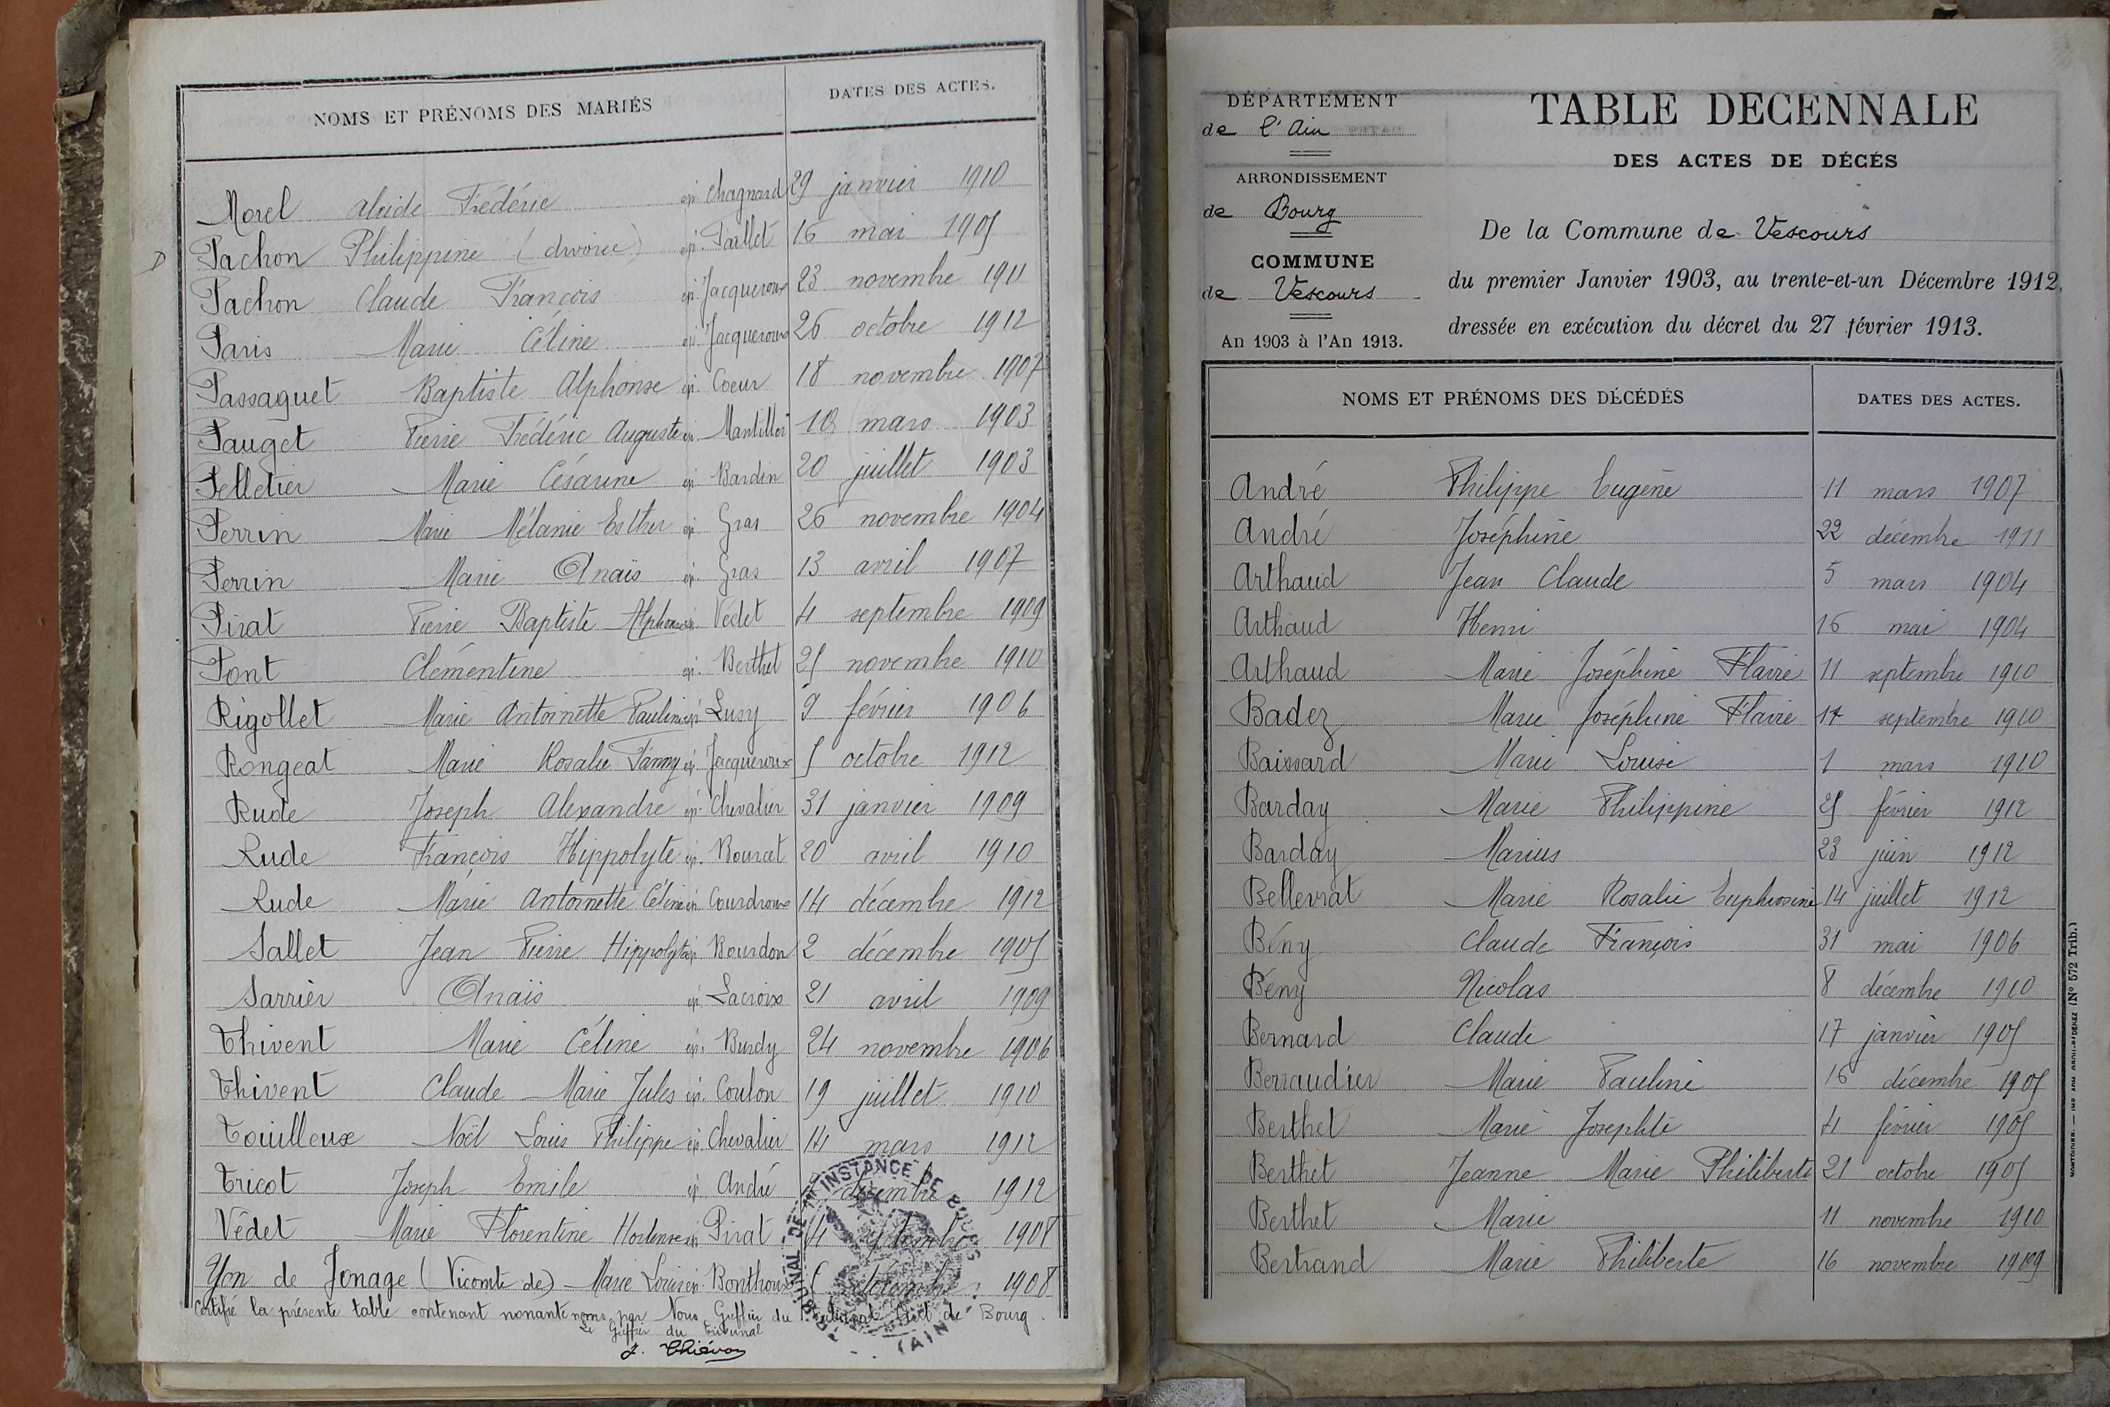 NOMS ET PRÉNOMS DES MARIÉS DATES DES ACTES.
Morel Alcide Frédéric ép. Chagnard 29 janvier 1910
D Pachon Philippine (divorcée) ép. Paillet 16 mai 1905
Pachon Claude François ép. Jacqueroux 23 novembre 1911
Paris Marie Céline ép. Jacqueroux 26 octobre 1912
Passaquet Baptiste Alphonse ép. Coeur 18 novembre 1907
Pauget Pierre Frédéric Auguste ép. mars 1903
Pelletier Marie Césarine ép. Bardin 20 juillet 1903
Perrin Marie Mélanie Esther ép. Gras 26 novembre 1904
Perrin Marie Anaïs ép. Gras 13 avril 1907
Pirat Pierre Baptiste Alphonse ép. Védet 4 septembre 1909
Pont Clémentine ép. Berthet 25 novembre 1910
Rigollet Marie Antoinette Pauline ép. Luxy 9 février 1906
Rongeat Marie Rosalie Fanny ép. Jacqueroux 5 octobre 1912
Rude Joseph Alexandre ép. Chevalier 31 janvier 1909
Rude François Hippolyte ép. Bourcet 20 avril 1910
Rude Marie Antoinette Céline ép. Courdroux 14 décembre 1912
Sallet Jean Pierre Hippolyte ép. Bourdon 2 décembre 1905
Sarrier Anaïs ép. Lacroix 21 avril 1909
Thivent Marie Céline ép. Burdy 24 novembre 1906
Thivent Claude Marie Jules ép. Coulon 19 juillet 1910
Touilleux Noël Louis Philippe ép. Chevalier 14 mars 1912
Tricot Joseph Emile ép. André décembre 1912
Védet Marie Florentine Hortense ép. Pirat 4 septembre 1908
Yon de Jonage (Vicomte de) Marie Louis ép. Bonthoux 5 1908
Certifié la présente table contenant nonante noms par Nous Greffier du Tribunal Civil de Bourg.
Le Greffier du Tribunal
J. Thiévon
TRIBUNAL DE 1re INSTANCE DE BOURG (AIN)
DÉPARTEMENT
de l'Ain
ARRONDISSEMENT
de Bourg
COMMUNE
de Vescours
An 1903 à l'An 1913.
TABLE DECENNALE
DES ACTES DE DÉCÉS
De la Commune de Vescours
du premier Janvier 1903, au trente-et-un Décembre 1912,
dressée en exécution du décret du 27 février 1913.
NOMS ET PRÉNOMS DES DÉCÉDÉS DATES DES ACTES.
André Philippe Eugène 11 mars 1907
André Joséphine 22 décembre 1911
Arthaud Jean Claude 5 mars 1904
Arthaud Henri 16 mai 1904
Arthaud Marie Joséphine Flavie 11 septembre 1910
Badez Marie Joséphine Flavie septembre 1910
Baissard Marie Louise 1 mars 1910
Barday Marie Philippine 25 février 1912
Barday Marius 23 juin 1912
Bellevrat Marie Rosalie Euphrosine 14 juillet 1912
Bény Claude François 31 mai 1906
Bény Nicolas 8 décembre 1910
Bernard Claude 17 janvier 1905
Berraudier Marie Pauline 16 décembre 1905
Berthet Marie Josephte 4 février 1905
Berthet Jeanne Marie Philiberte 21 octobre 1905
Berthet Marie 11 novembre 1910
Bertrand Marie Philiberte 16 novembre 1909
(N° 572 Trib.)